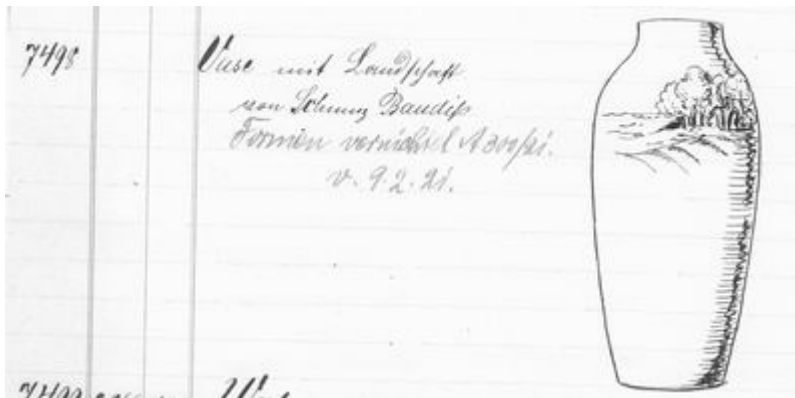 7498
Vase mit Landschaft
von Schmuz Baudiß
Formen vernichtet A 300/21.
v. 9.2.21.
7499